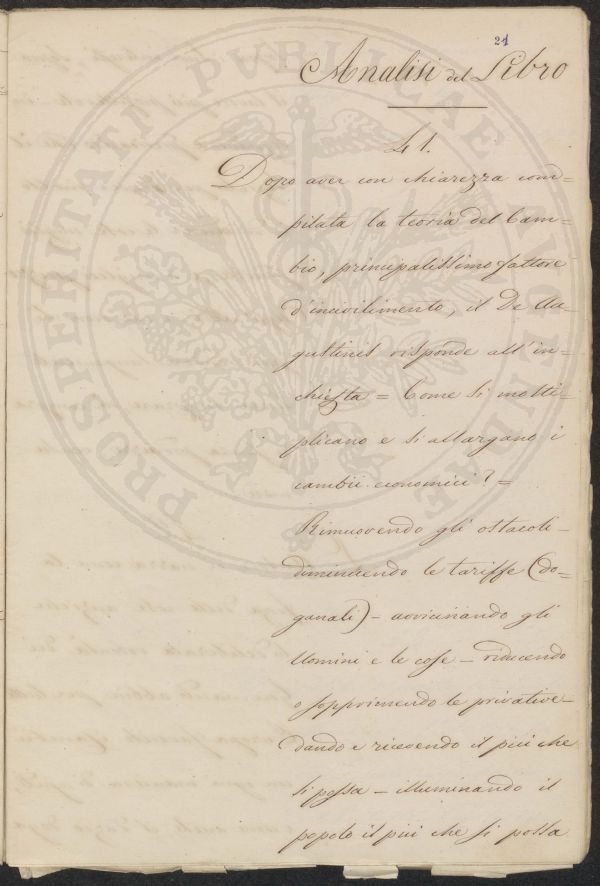 21
Analisi del Libro
§ 1.
Dopo aver con chiarezza com=
pilata la teoria del Cam=
bio, principalissimo fattore
d'incivilimento, il De Au=
gustinis risponde all'in=
chiesta = Come si molti=
plicano e si allargano i
cambii economici? =
Rimuovendo gli ostacoli –
diminuendo le tariffe (do=
ganali) – avvicinando gli
Uomini e le cose – riducendo
o sopprimendo le privative –
dando e ricevendo il più che
si possa – illuminando il
popolo il più che si possa
PROSPERITATI PVBLICAE AVGENDAE